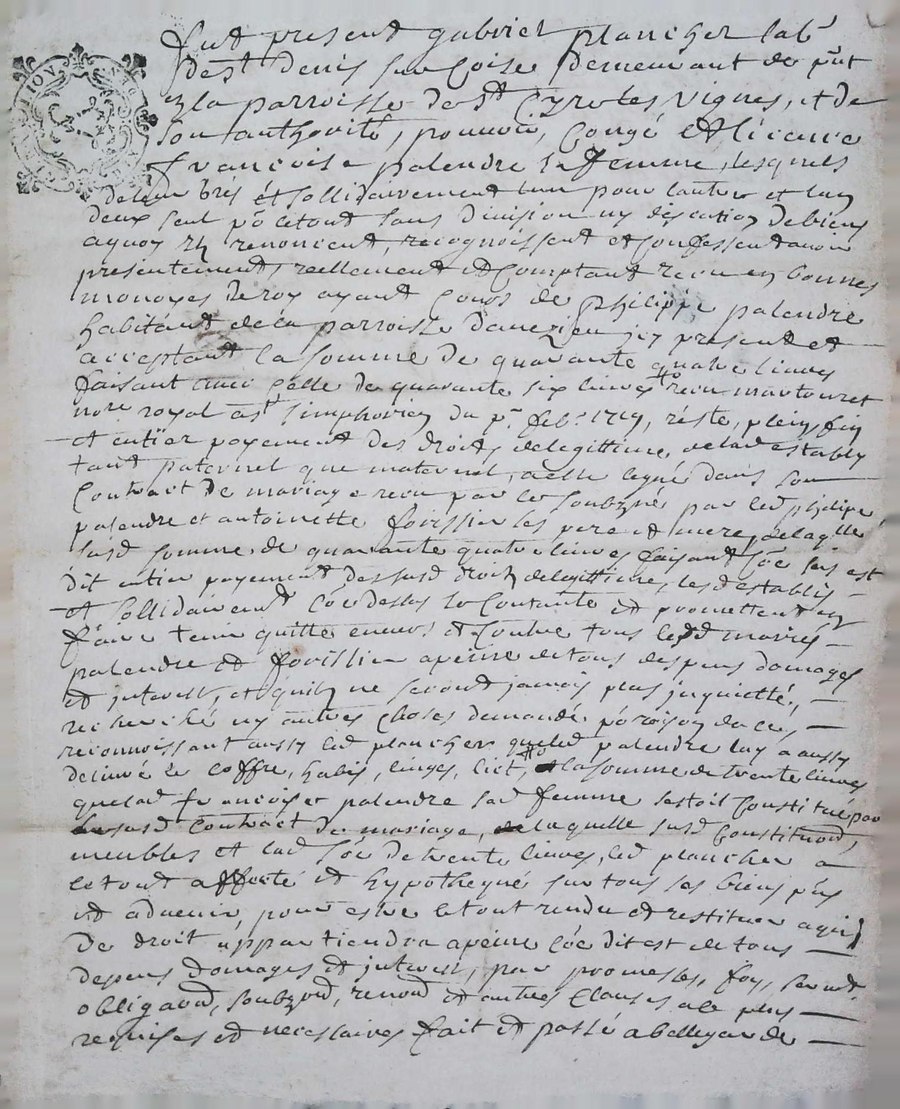 Fut present gabriel plancher lab^r
de s^t denis sur Coise demeurant de pnt
en la parroisse de s^t Cyr les vignes, et de
son authorité, pouvoir, Congé et licance
françoise palendre sa femme, lesquels
de leur grés et sollidairement l'un pour l'autre et lun
deux seul p^r le tout sans division ny discution de biens
aquoy ils renoncent, recognoissent et confessent avoir
presentement, reellement et Comptant receu en bonnes
monoyes de roy ayant Cours de philippe palendre
habitant de la parroisse icy present et
acceptant la somme de quarante quatre livres
faisant avec celle de quarante six livres receu
no^re royal a s^t simphorien du p^r feb^r 1719, reste, plein, fin
et entier payement des droits de legittime,
tant paternel que maternel, a elle legué dans son
Contract de mariage receu par le soubzné par led philipe
palendre et antoinette fovissier ses pere et mere, de laqlle
susd somme de quarante quatre livres faisant Cóe sus est
dit entier payement des susd droits de legittime, les d establis
et sollidairem^t Cóe dessus se Contante et promettent en
faire tenir quitte envers et Contre tous lesd mariés
palendre et fovissier apeine de tous despens domages
et interest, et quils ne seront jamais plus inquietté,
recherché ny autres Choses demandé p^r raison de ce,
reconnoissant aussy led plancher que led palendre luy a aussy
delivré le coffre, habis, linges, lict, et la somme de trente livres
que lad francoise palendre sad femme sestoit Constitué par
susd Contract de mariage, de laquelle susd Constitution,
meubles et lad sóe de trente livres, led plancher a
le tout affecté et hypothequé sur tous ses biens pns
et advenir, pour estre le tout rendu et restituer a qui
de droit appartiendra apeine Cóe dit est de tous
depens domages et interest, par promesses, foy, serm^t,
obliga^on, soubz^on, renon^on et autres Clauses a ce plus
requises et necessaires fait et passé a bellegarde